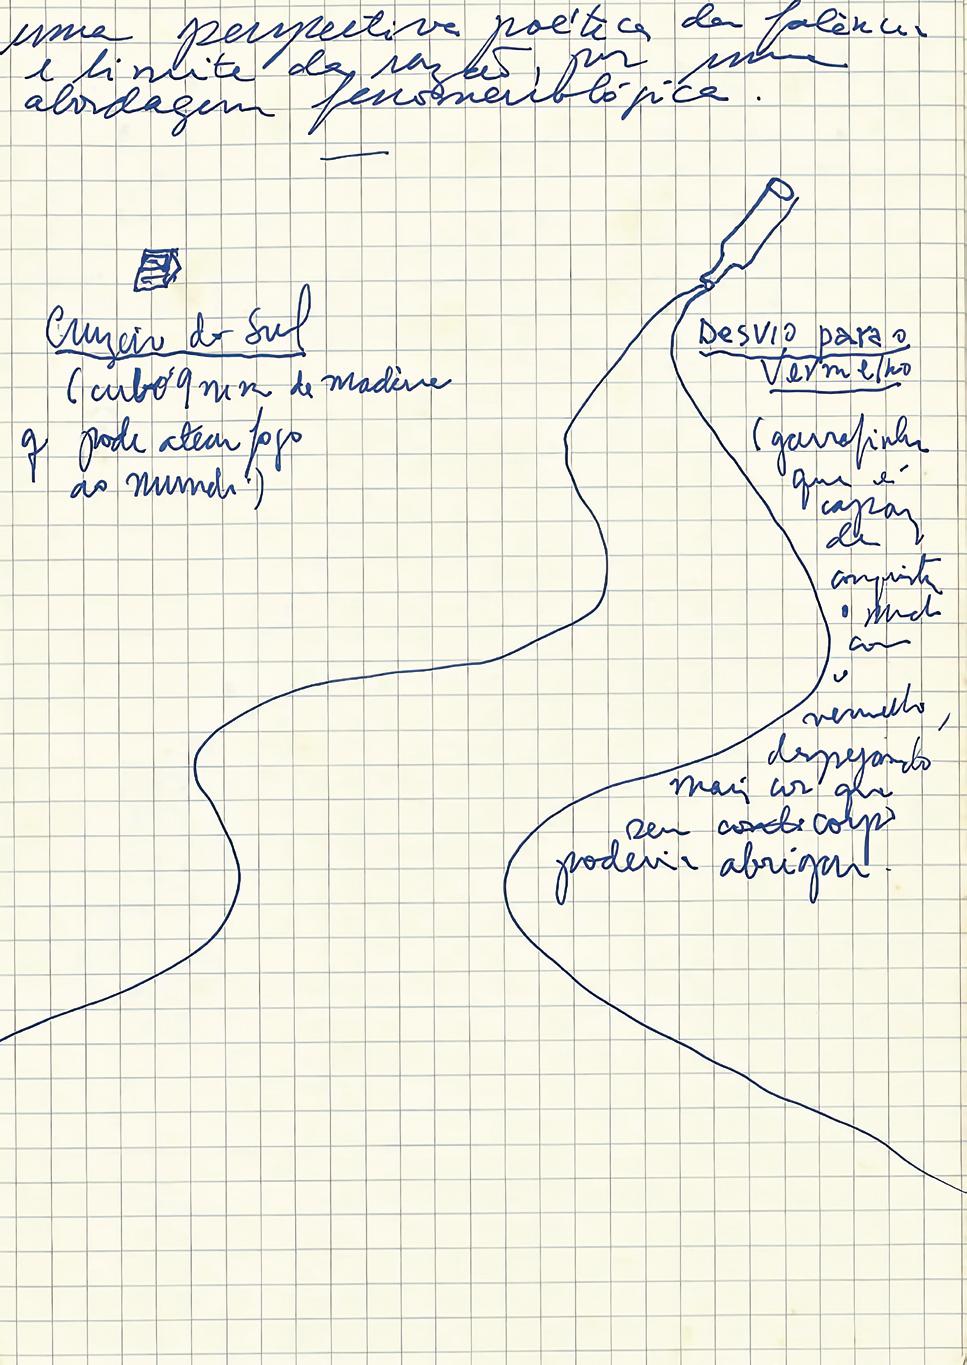 uma perspectiva poética da falência
e limite da razão, por uma
abordagem fenomenológica.
Cruzeiro do Sul
(cubo 9mm de madeira
q pode atear fogo
ao mundo)
Desvio para o
Vermelho
(garrafinha
que é
capaz
de
conquistar
o mundo
com
o
vermelho,
despejando
mais cor que
seu corpo
poderia abrigar.